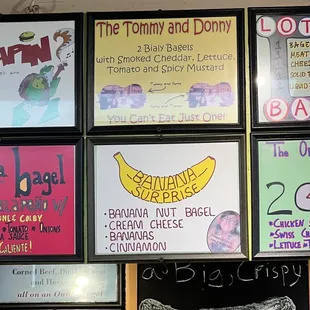 APIN
The Tommy and Donny
2 Bialy Bagels
with Smoked Cheddar, Lettuce,
Tomato and Spicy Mustard
You Can't Eat Just One!
LOT
1
BAGEL
MEAT
CHEES
SOLID T
LIQUID
BA
a bagel
W/
COLBY
TOMATO • ONIONS
SAUCE
CALIENTE!
BANANA
SURPRISE
• BANANA NUT BAGEL
• CREAM CHEESE
• BANANAS
• CINNAMON
The O
2
• CHICKEN
• SWISS CH
• LETTUCE • T
Corned Beef,
all on an
a Big, Crispy